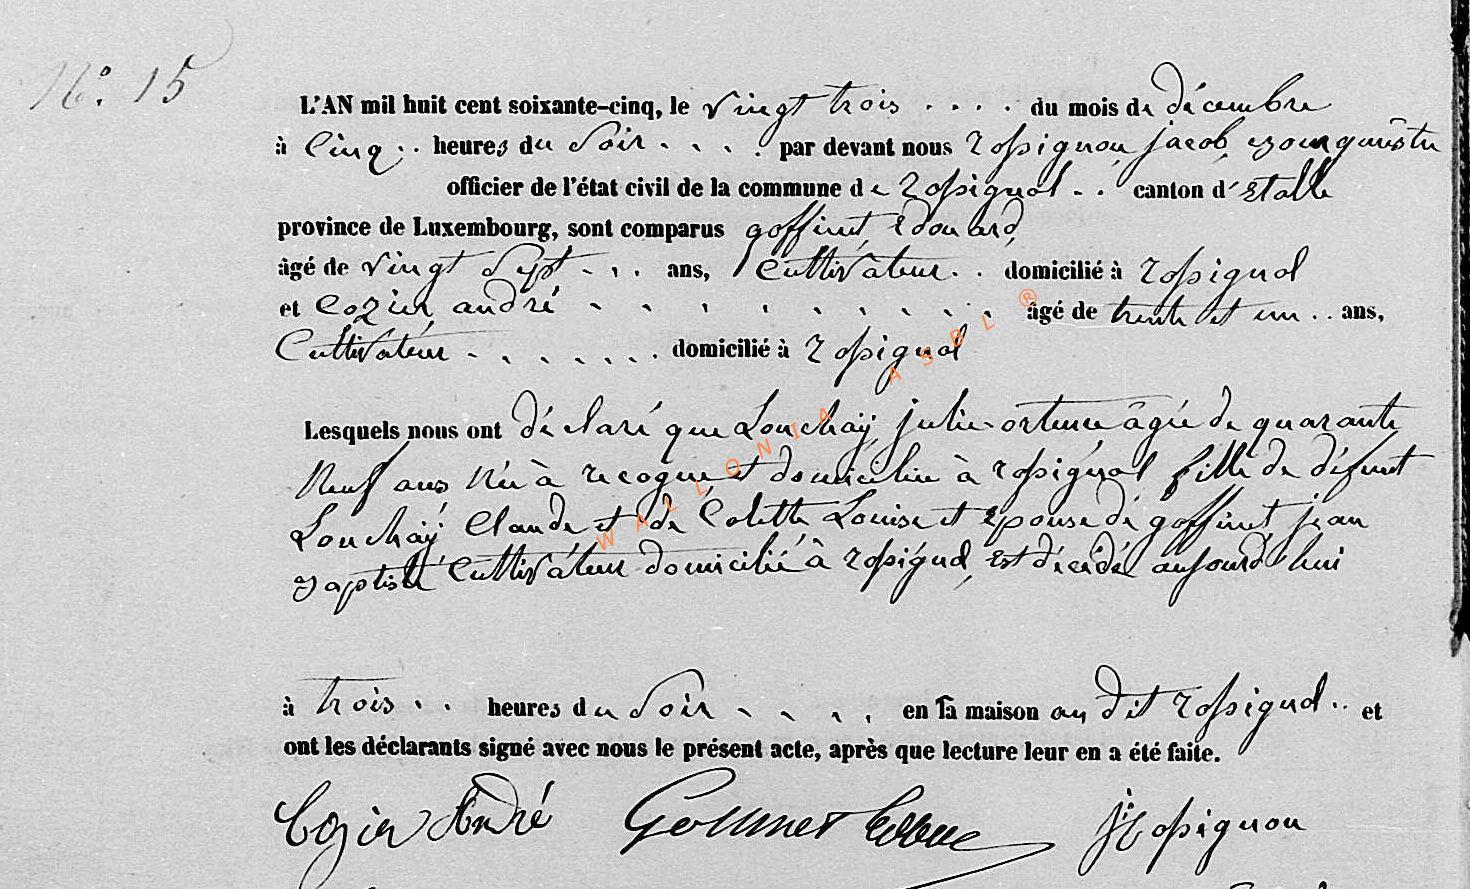 N°. 15
L'AN mil huit cent soixante-cinq, le vingt trois .... du mois de décembre
à cinq .. heures du soir .... par devant nous Rossignon jacob, bourgmestre
officier de l'état civil de la commune de Rossignol .. canton d'Etalle
province de Luxembourg, sont comparus goffinet, Edouard,
âgé de vingt sept ... ans, Cultivateur .. domicilié à Rossignol
et Cozier andré .......... âgé de trente et un .. ans,
Cultivateur ....... domicilié à Rossignol
Lesquels nous ont déclaré que Louchaÿ, julie-ortence âgée de quarante
Neuf ans Née à recogne et domiciliée à rossignol fille de défunt
Louchaÿ Claude et de Colette Louise et épouse de goffinet jean
Baptiste Cultivateur domicilié à rossignol, est décédée aujourd'hui
à trois .. heures du Soir .... en sa maison au dit Rossignol .. et
ont les déclarants signé avec nous le présent acte, après que lecture leur en a été faite.
Cozier André Goffinet j Rossignon
WALLONIA ASBL ®